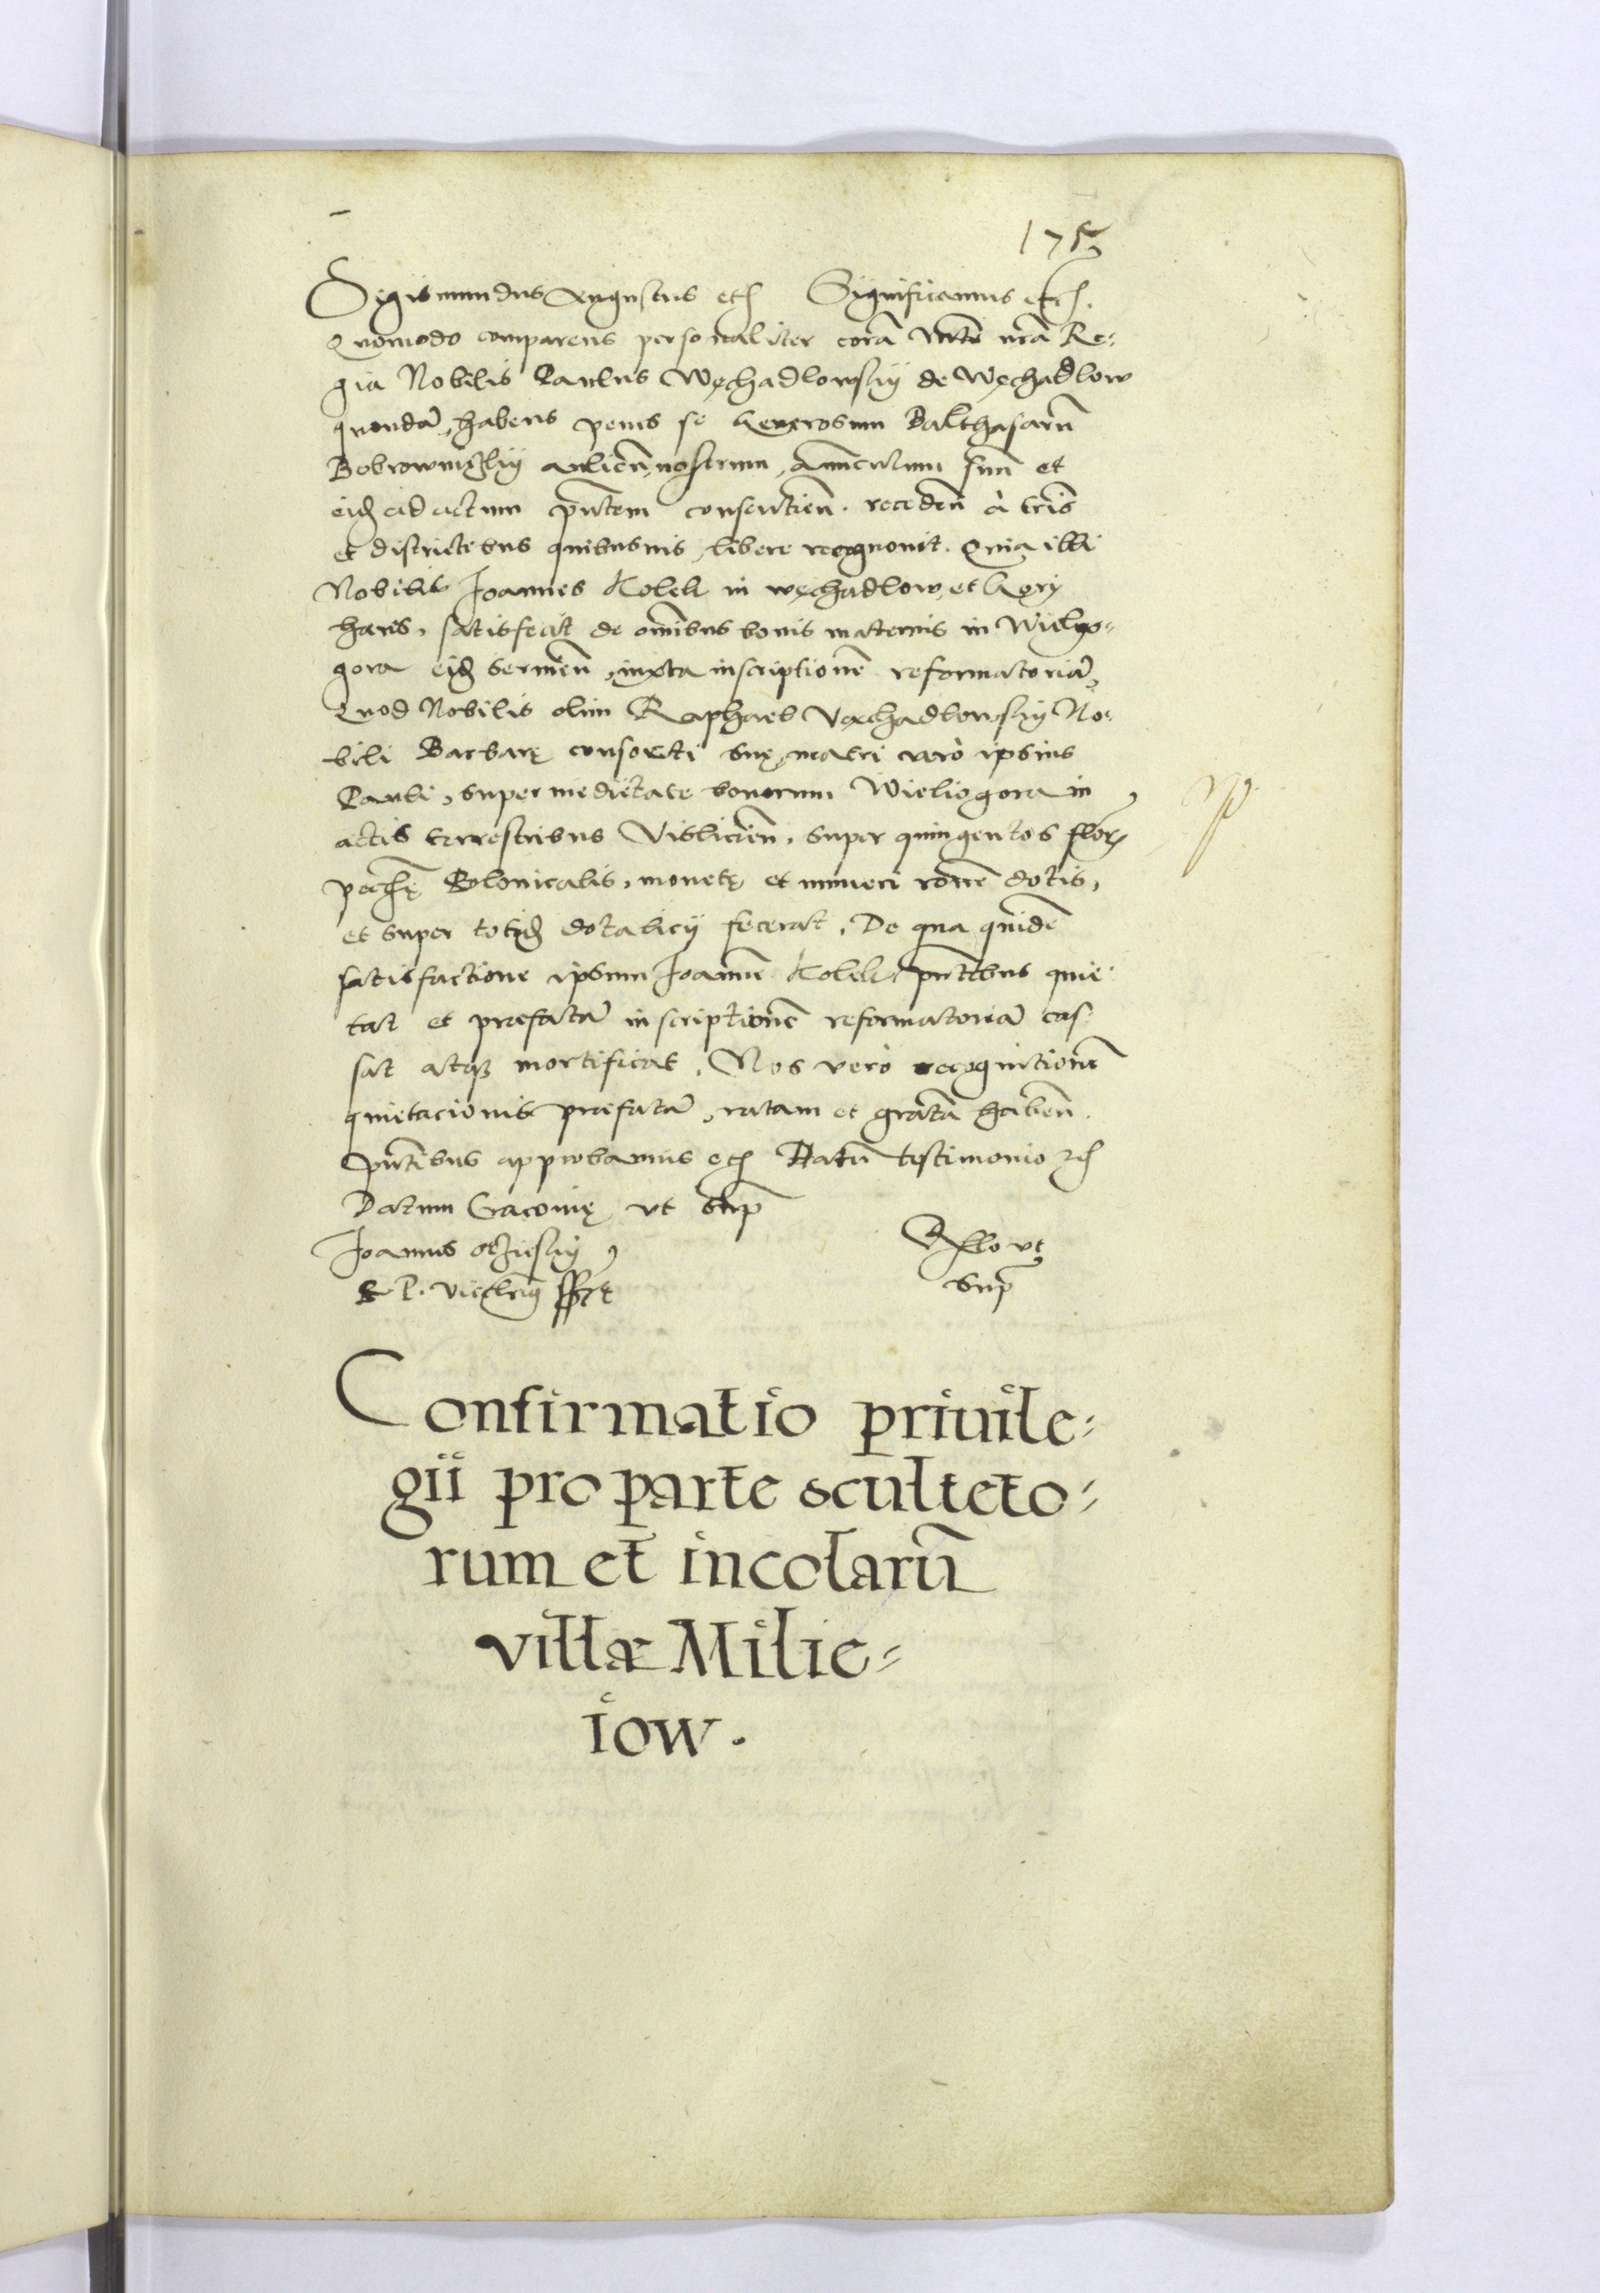 175
Sigismundus Augustus etc Significamus etc.
Quomodo comparens personaliter corã Mte nrã Re-
gia Nobilis Paulus Węchadlowsky de Węchadlow
quondã, habens penes se Generosum Balthasarũ
Bobrownizky aulicũ nostrum, Auunculum suũ et
eidẽ ad actum pñtem consentieñ. recedeñ à tris
et districtibus quibusuis, libere recognouit. Quia illi
Nobilis Joannes Kolek in węchadlow, et Gory
hæres, satisfecit de om̃ibus bonis maternis in Wielgo-
gora eidẽ serui eñ, iuxta inscriptionẽ reformatoriã,
Quod Nobilis olim Raphael Vęchadlowsky No-
bili Barbarę consorti suę, matri verò ipsius
Pauli, super medietate bonorum Wieliogora in
actis terrestribus Visliciẽn. super quingentos flor
pecñę Polonicalis, monetę et numeri rõne dotis,
et super totidẽ dotalicy fecerat. De qua quidẽ
satisfactione ipsum Joannẽ Kolek pñtibus quie-
tat et præfatã inscriptionẽ reformatoriã cas-
sat atq3 mortificat. Nos verò recognitionẽ
quietacionis præfatã, ratam et gratã habeñ.
pñtibus approbamus etc Harũ testimonio etc
Datum Cracouię ut sup
Joannes Oczieski
R. P. Vicecancellarius sspt
Rlo ut
sup
Confirmatio priuile-
gii pro parte sculteto-
rum et incolarũ
villæ Milie-
iow.